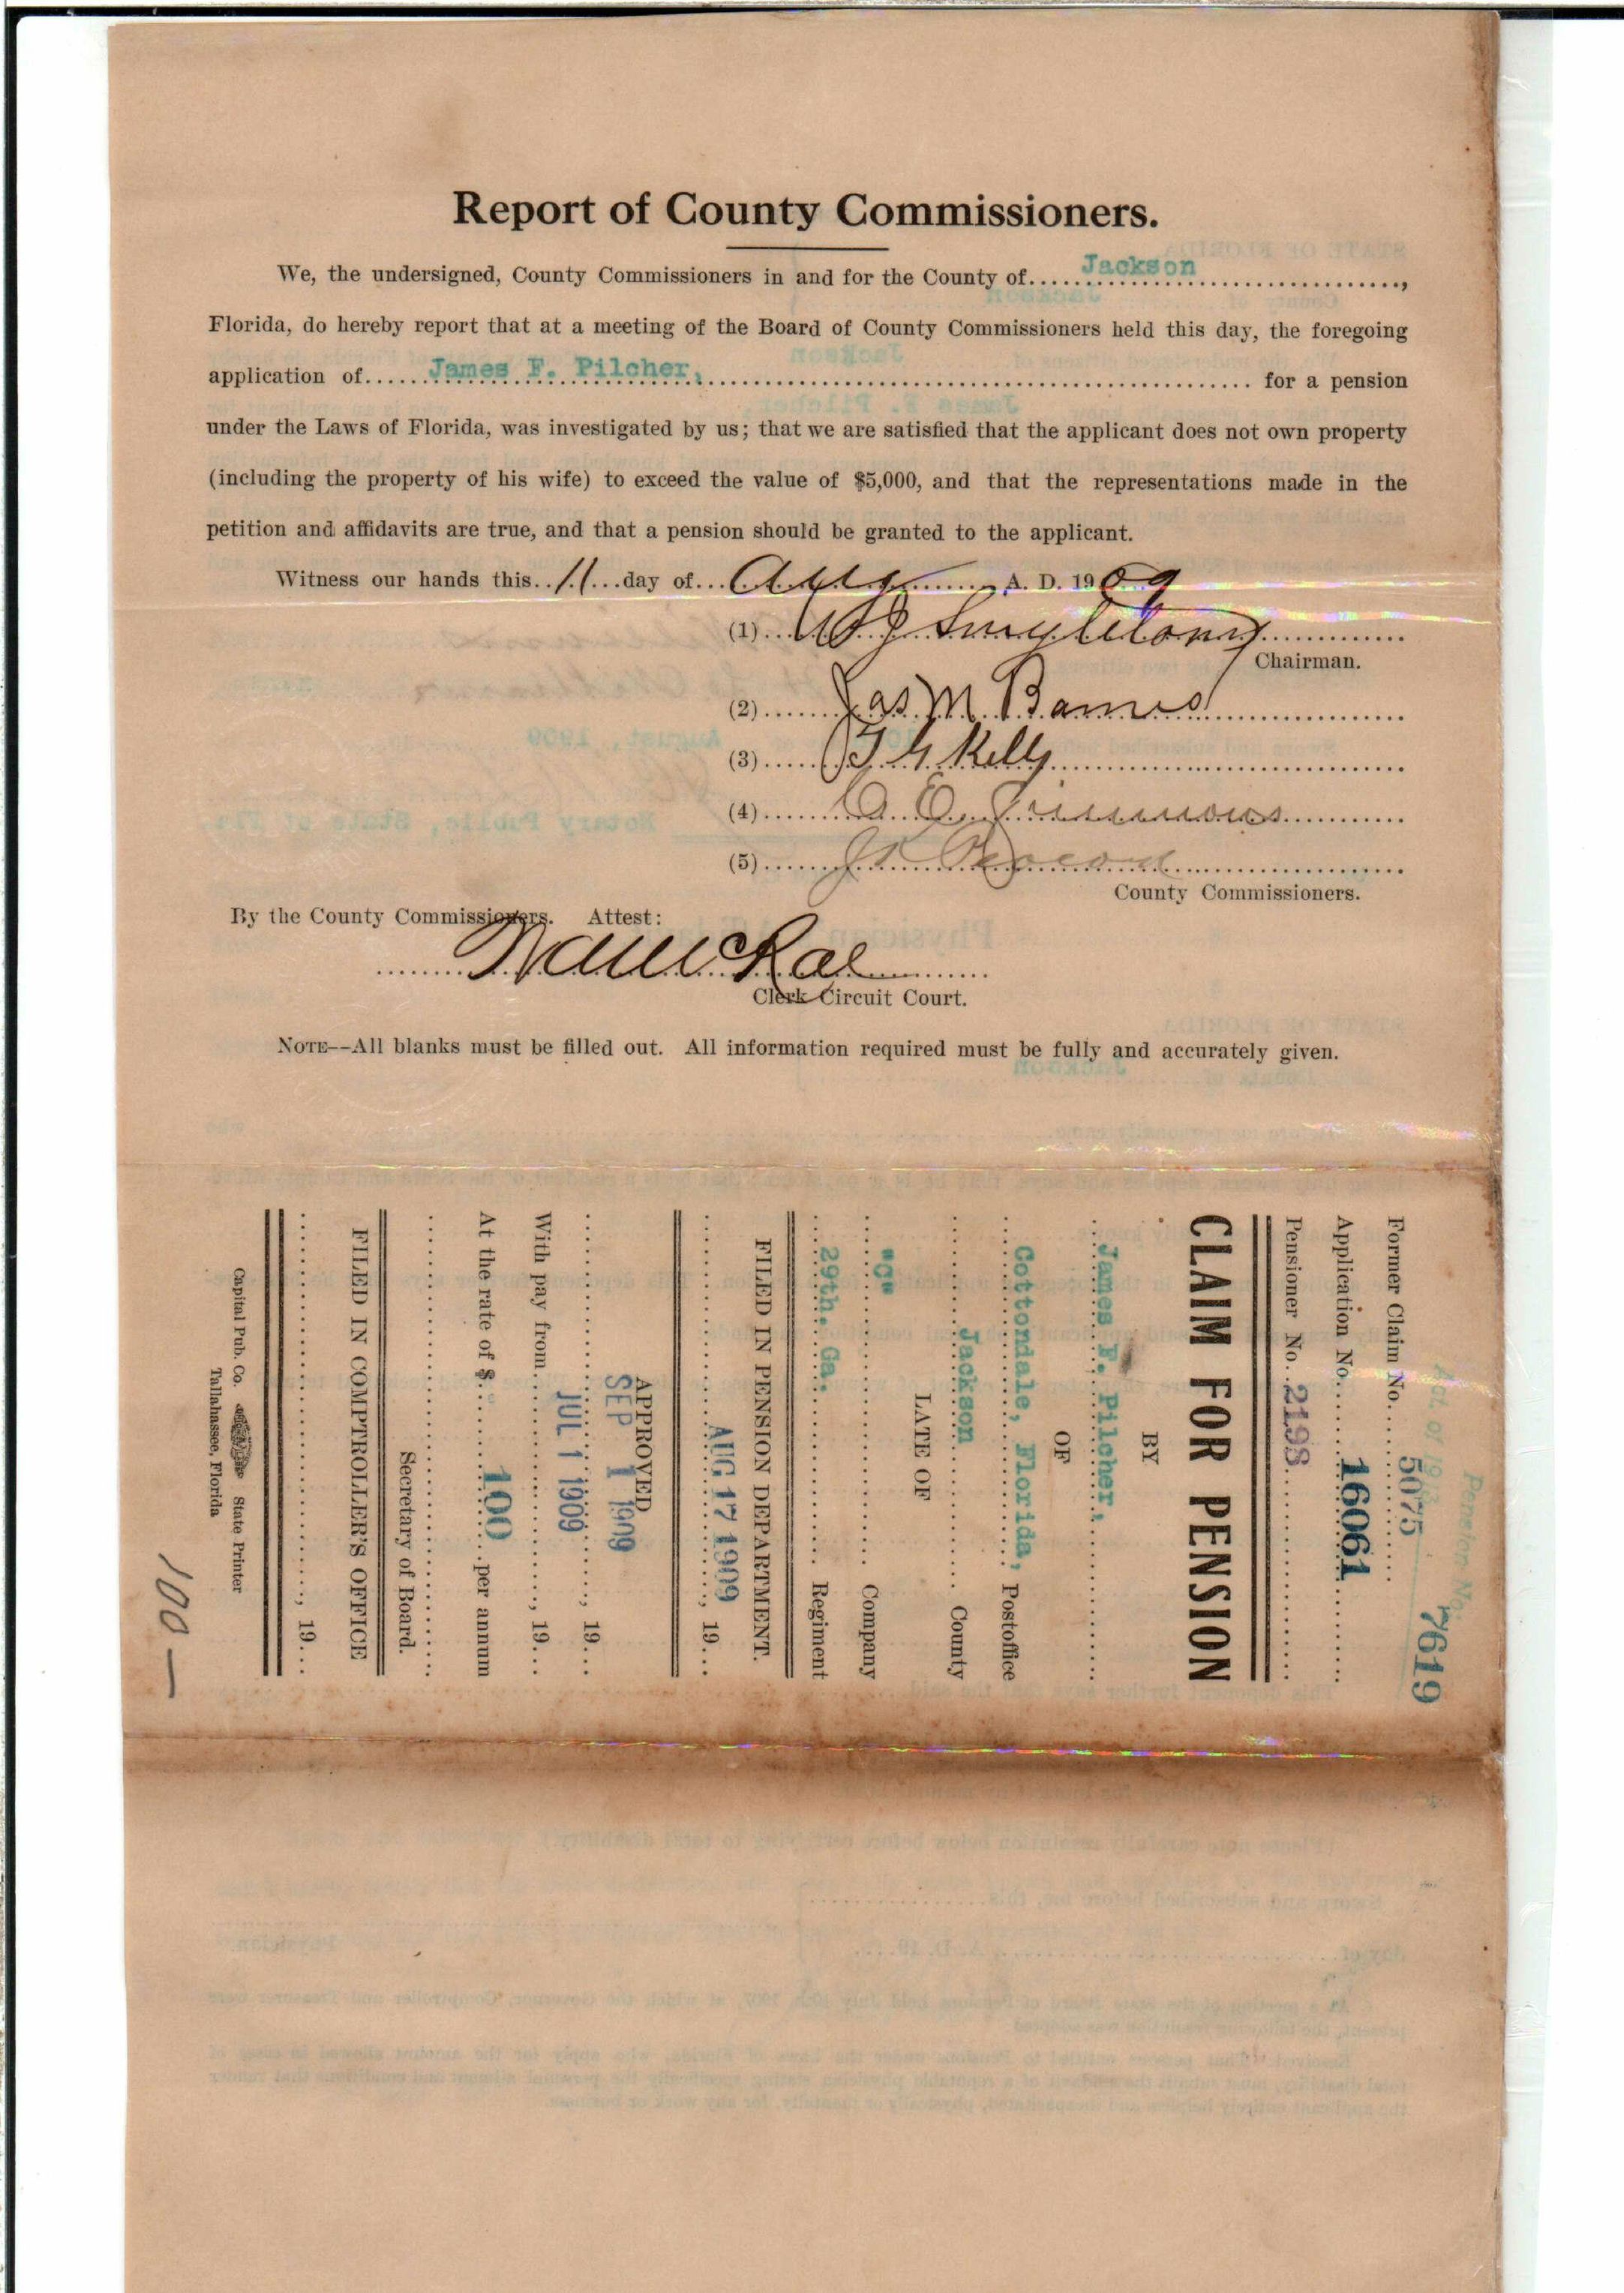 Report of County Commissioners.
We, the undersigned, County Commissioners in and for the County of....Jackson....,
Florida, do hereby report that at a meeting of the Board of County Commissioners held this day, the foregoing
application of....James F. Pilcher,.... for a pension
under the Laws of Florida, was investigated by us; that we are satisfied that the applicant does not own property
(including the property of his wife) to exceed the value of $5,000, and that the representations made in the
petition and affidavits are true, and that a pension should be granted to the applicant.
Witness our hands this..11...day of...Aug...., A. D. 1909
(1)
Chairman.
(2)....Jas M Barnes
(3)....T G Kelly
(4)
(5)
County Commissioners.
By the County Commissioners. Attest:
McRae
Clerk Circuit Court.
NOTE--All blanks must be filled out. All information required must be fully and accurately given.
Pension No. 7619
Act of
Former Claim No....5075
Application No....16061
Pensioner No...2193
CLAIM FOR PENSION
BY
James F. Pilcher,
OF
Cottondale, Florida, Postoffice
Jackson County
LATE OF
"G" Company
29th. Ga. Regiment
FILED IN PENSION DEPARTMENT.
AUG 17 1909, 19...
APPROVED
SEP 1 1909, 19...
With pay from JUL 1 1909, 19...
At the rate of $....100....per annum
Secretary of Board.
FILED IN COMPTROLLER'S OFFICE
, 19...
Capital Pub. Co. State Printer
Tallahassee, Florida
100 —